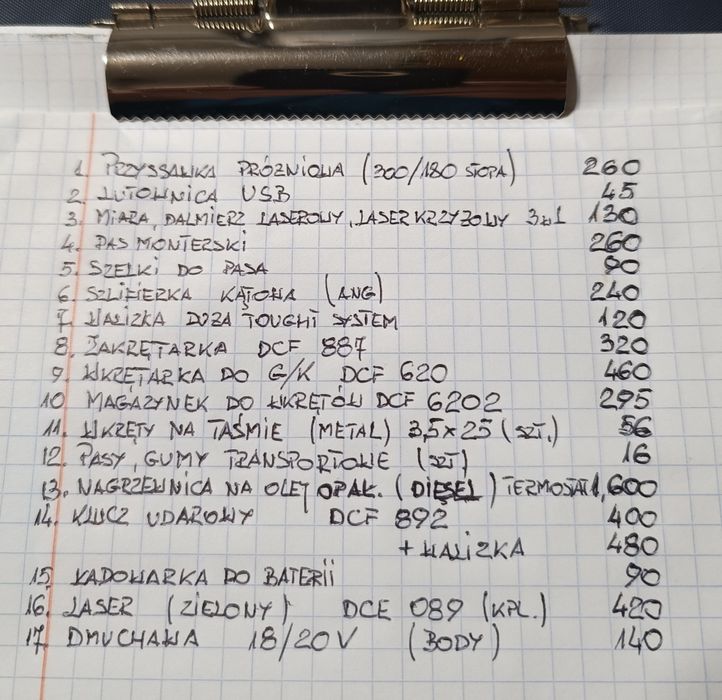 1. PRZYSSAWKA PRÓŻNIOWA (300/180 STOPA) 260
2. LUTOWNICA USB 45
3. MIARA, DALMIERZ LASEROWY, LASER KRZYŻOWY 3w1 130
4. PAS MONTERSKI 260
5. SZELKI DO PASA 90
6. SZLIFIERKA KĄTOWA (ANG) 240
7. WALIZKA DUŻA TOUGHT SYSTEM 120
8. ZAKRĘTARKA DCF 887 320
9. WKRĘTARKA DO G/K DCF 620 460
10 MAGAZYNEK DO WKRĘTÓW DCF 6202 295
11. WKRĘTY NA TAŚMIE (METAL) 3,5x25 (SZT.) 56
12. PASY, GUMY TRANSPORTOWE (SZT) 16
13. NAGRZEWNICA NA OLEJ OPAŁ. (DIESEL) TERMOSTAT 1,600
14. KLUCZ UDAROWY DCF 892 400
+ WALIZKA 480
15 ŁADOWARKA DO BATERII 90
16. LASER (ZIELONY) DCE 089 (KPL.) 420
17. DMUCHAWA 18/20V (BODY) 140